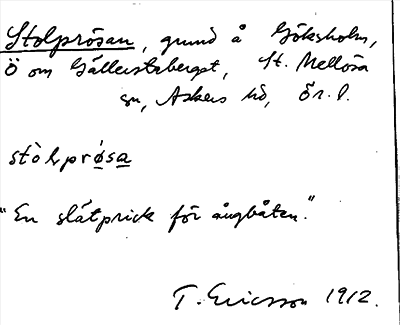 Stolprösan, grund å Göksholm,
Ö om Gällerstaberget, St. Mellösa
sn, Askers hd, Ör. l.
stòlprǿsa
"En slätprick för ångbåten."
T. Ericsson 1912.